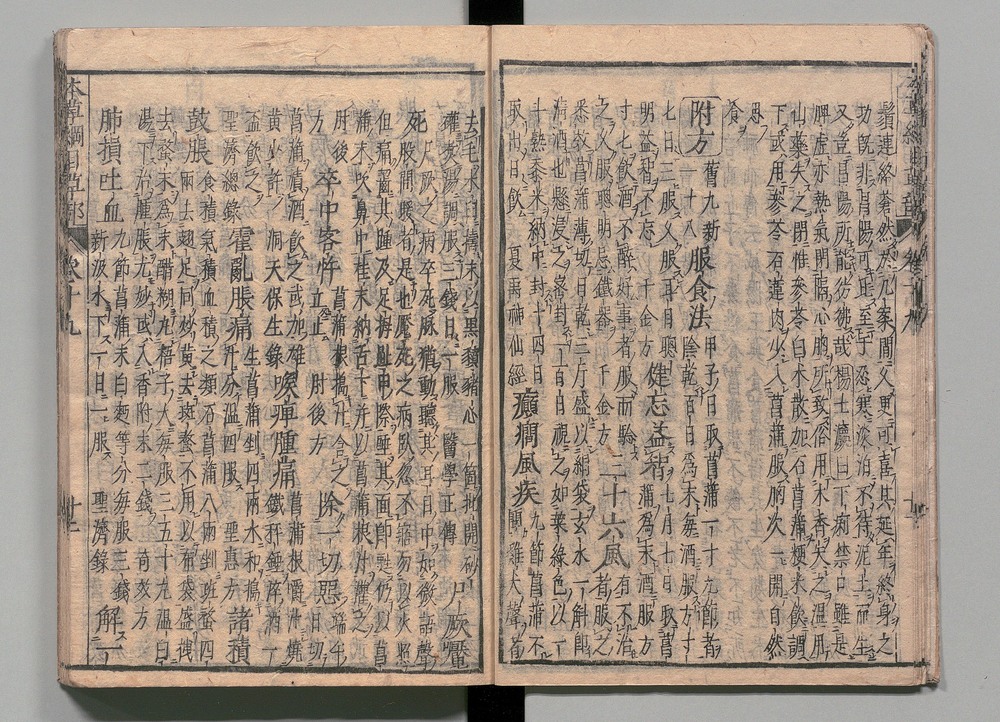 鬚連絡蒼然於几案間又更可喜其延年終身之
功既非昌陽可比至於忍寒淡泊不待泥土而生
又豈昌陽所能彷彿哉楊士瀛曰下痢禁口雖是
脾虛亦熱氣閉隔心胸所致俗用木香失之溫用
山藥失之閉惟參苓白朮散加石菖蒲粳米飲調
下或用參苓石蓮肉少入菖蒲服胸次一開自然
思
食
附方 舊九新一十八 服食法 甲子日取菖蒲一寸九節者陰乾百日為末每酒服方寸匕
日三服久服耳目聰明益智不忘 千金方 健忘益智 七月七日取菖蒲為末酒服方
寸匕飲酒不醉好事者服而驗之久服聰明忌鐵器 千金方 三十六風 有不治者服之
悉效菖蒲薄切日乾三斤盛以絹袋玄水一斛即清酒也懸浸之密封一百日視之如菜綠色以一
斗熟黍米納中封十四日取出日飲 夏禹神仙經 癲癇風疾 九節菖蒲不聞雞犬聲者
去毛木臼搗末以黑豶豬心一箇批開砂罐煮湯調服三錢日一服 醫學正傳 尸厥魘
死 尸厥之病卒死脈猶動聽其耳目中如微語聲股間暖者是也魘死之病臥忽不寤勿以火照
但痛嚙其踵及足拇趾甲際唾其面即甦仍以菖蒲末吹鼻中桂末納舌下并以菖蒲根汁灌之
肘後方 卒中客忤 菖蒲根搗汁含之立止 肘後方 除一切惡 端午日切
菖蒲漬酒飲之或加雄黃少許 洞天保生錄 喉痺腫痛 菖蒲根嚼汁燒鐵秤錘淬酒一
盃飲之 聖濟總錄 霍亂脹痛 生菖蒲剉四兩水和搗汁分溫四服 聖惠方 諸積
鼓脹 食積氣積血積之類石菖蒲八兩剉斑蝥四兩去翅足同炒黃去斑蝥不用以布袋盛拽
去蝥末為末醋糊丸梧子大每服三五十丸溫白湯下治腫脹尤妙或入香附末二錢 奇效方
肺損吐血 九節菖蒲末白麪等分每服三錢新汲水下一日一服 聖濟錄 解一
本草綱目草部 卷十九 廿二